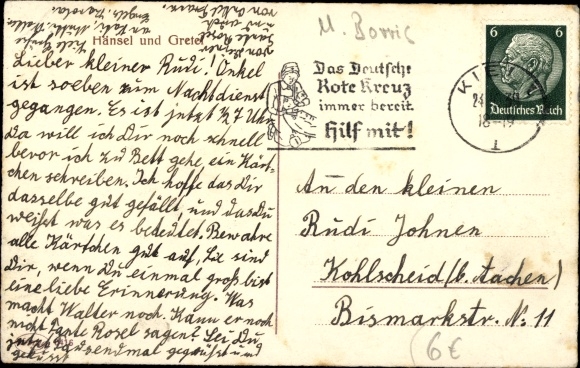 Hänsel und Gretel
Lieber kleiner Rudi! Onkel
ist soeben zum Nachtdienst
gegangen. Es ist jetzt 7 Uhr
Da will ich Dir noch schnell
bevor ich zu Bett gehe ein Kärt-
chen schreiben. Ich hoffe das Dir
dasselbe gut gefällt, und das Du
weißt was es bedeutet. Bewahre
alle Kärtchen gut auf, Sie sind
Dir, wenn Du einmal groß bist
eine liebe Erinnerung. Was
macht Walter noch. Kann er noch
nicht Tante Rosel sagen? Sei Du
tausendmal gegrüßt und
geküsst
von Deiner
Tante Rosel
und auch
von Onkel
M. Borris
Das Deutsche
Rote Kreuz
immer bereit
Hilf mit!
6 6
Deutsches Reich
KIEL
24
18-19
1
An den kleinen
Rudi Johnen
Kohlscheid (b. Aachen)
Bismarckstr. No 11
6 €